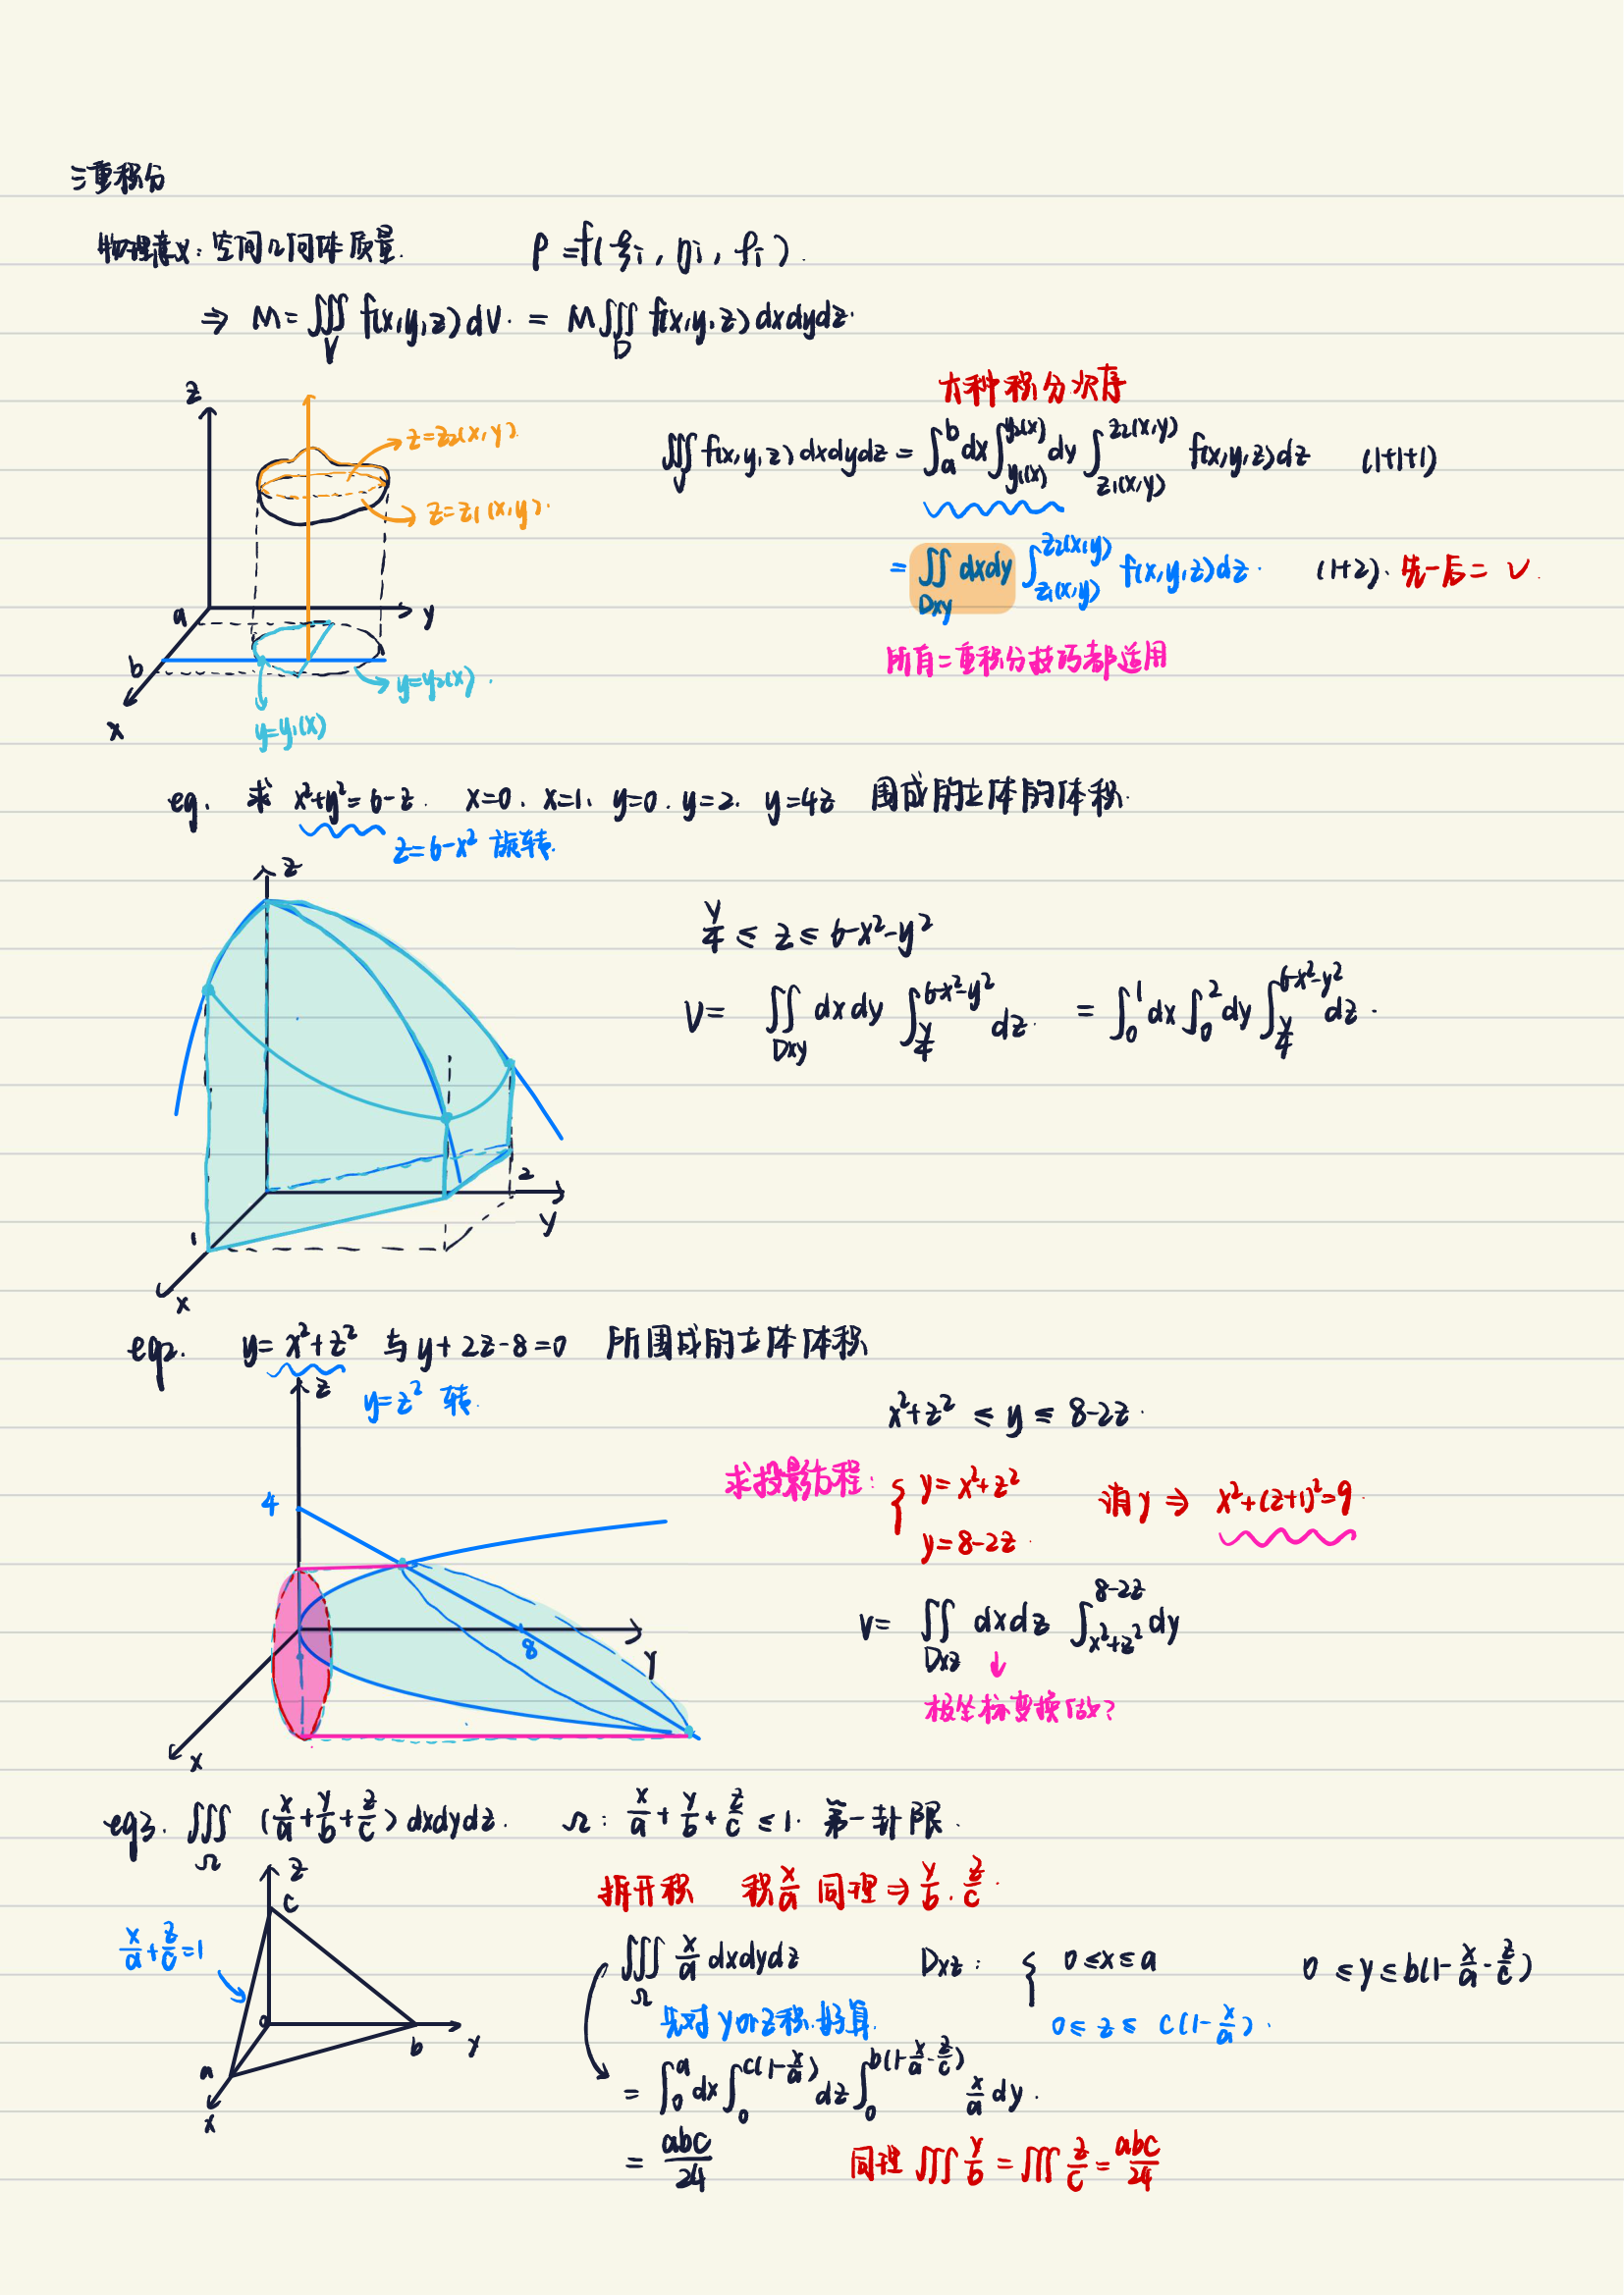 三重积分
物理意义：空间几何体质量. ρ = f(ξi, ηi, ρi).
⇒ M = ∭_V f(x,y,z)dV. = M∭_D f(x,y,z)dxdydz.
六种积分次序
z
z=z₂(x,y)
z=z₁(x,y)
a
b
x
y
y=y₂(x)
y=y₁(x)
∭_V f(x,y,z)dxdydz = ∫_a^b dx ∫_{y₁(x)}^{y₂(x)} dy ∫_{z₁(x,y)}^{z₂(x,y)} f(x,y,z)dz (1+1+1)
= ∬_{Dxy} dxdy ∫_{z₁(x,y)}^{z₂(x,y)} f(x,y,z)dz. (1+2). 先一后二 ✓.
所有二重积分技巧都适用
eg. 求 x²+y²=6-z. x=0. x=1. y=0. y=2. y=4z 围成的立体的体积.
z=6-x² 旋转.
z
1
x
2
y
y/4 ≤ z ≤ 6-x²-y²
V = ∬_{Dxy} dxdy ∫_{y/4}^{6-x²-y²} dz. = ∫_0^1 dx ∫_0^2 dy ∫_{y/4}^{6-x²-y²} dz.
eg2. y=x²+z² 与 y+2z-8=0 所围成的立体体积
y=z² 转.
z
4
8
y
x
x²+z² ≤ y ≤ 8-2z.
求投影方程: { y=x²+z² 消y ⇒ x²+(z+1)²=9.
y=8-2z.
V = ∬_{Dxz} dxdz ∫_{x²+z²}^{8-2z} dy
↓
极坐标变换做?
eg3. ∭_Ω (x/a+y/b+z/c)dxdydz. Ω: x/a+y/b+z/c ≤1. 第一卦限.
z
c
x/a+z/c=1
o
a
x
b
y
拆开积 积x/a 同理⇒ y/b. z/c.
∭_Ω x/a dxdydz Dxz: { 0≤x≤a 0≤y≤b(1-x/a-z/c)
先对y or z积. 好算. 0≤z≤ c(1-x/a).
= ∫_0^a dx ∫_0^{c(1-x/a)} dz ∫_0^{b(1-x/a-z/c)} x/a dy.
= abc/24 同理 ∭ y/b = ∭ z/c = abc/24